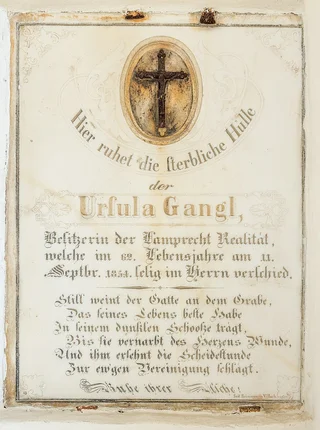 Hier ruhet die sterbliche Hülle
der
Ursula Gangl,
Besitzerin der Lamprecht Realität,
welche im 62. Lebensjahre am 11.
Septbr. 1854. selig im Herrn verschied.
Still weint der Gatte an dem Grabe,
Das seines Lebens beste Habe
In seinem dunklen Schooße trägt,
Bis sie vernarbt des Herzens Wunde,
Und ihm ersehnt die Scheidestunde
Zur ew'gen Vereinigung schlägt.
Ruhe ihrer Asche!